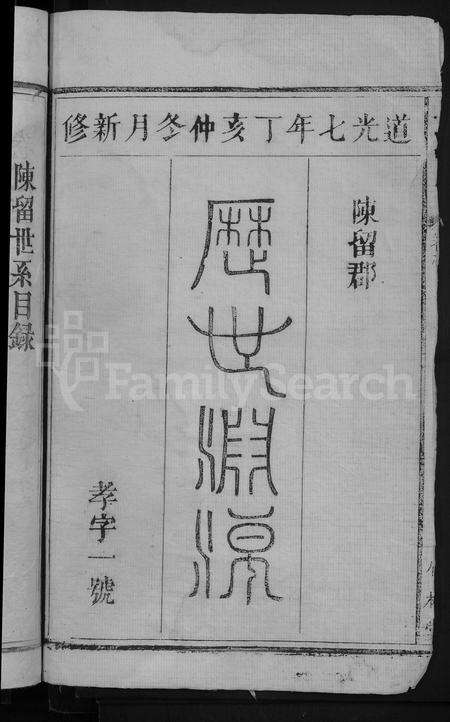 道光七年丁亥仲冬月新修
陳留郡
歷世淵源
孝字一號
陳留世系目錄
FamilySearch